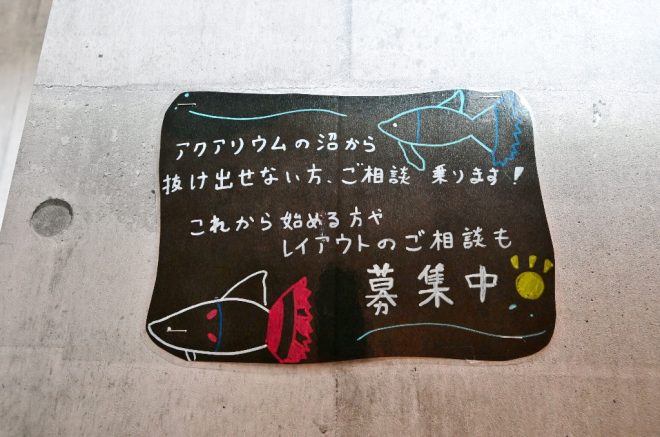 アクアリウムの沼から
抜け出せない方、ご相談 乗ります!
これから始める方や
レイアウトのご相談も
募集中